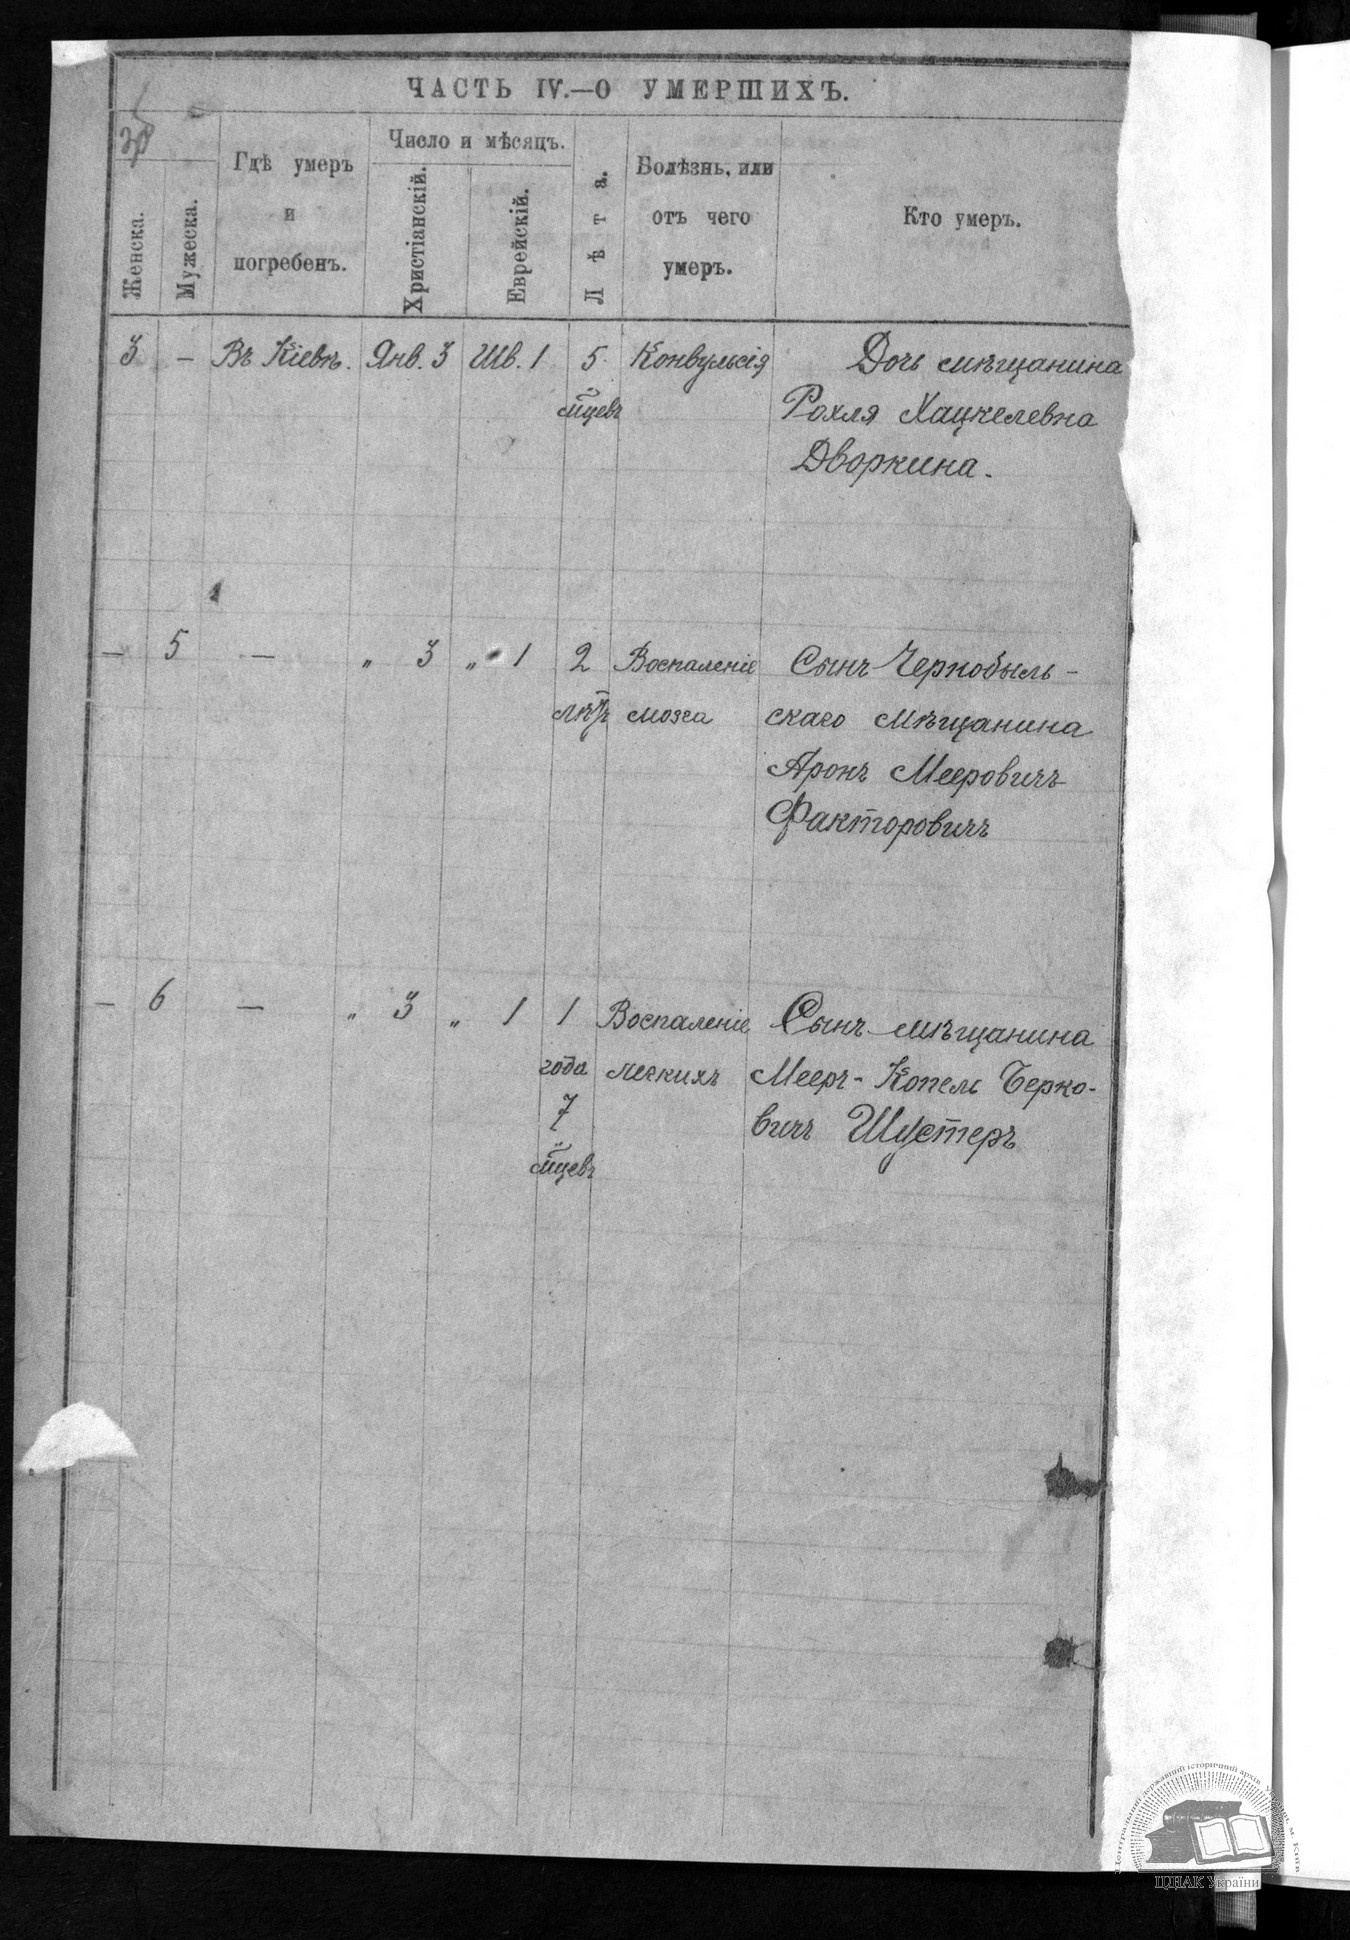 ЧАСТЬ IV.—О УМЕРШИХЪ.
Женска.
Мужеска.
Гдѣ умеръ
и
погребенъ.
Число и мѣсяцъ.
Христіанскій.
Еврейскій.
Лѣта.
Болѣзнь, или
отъ чего
умеръ.
Кто умеръ.
3 — Въ Кіевѣ. Янв. 3 Шв. 1 5 Конвульсія Дочь мѣщанина
мцевъ Рохля Хацкелевна
Дворкина.
— 5 — „ 3 „ 1 2 Воспаленіе Сынъ Чернобыль-
лѣтъ мозга скаго мѣщанина
Аронъ Мееровичъ
Факторовичъ
— 6 — „ 3 „ 1 1 Воспаленіе Сынъ мѣщанина
года легкихъ Мееръ-Копель Берко-
7 вичъ Шустеръ
мцевъ
Центральний державний історичний архів України, м. Київ
ЦДІАК України